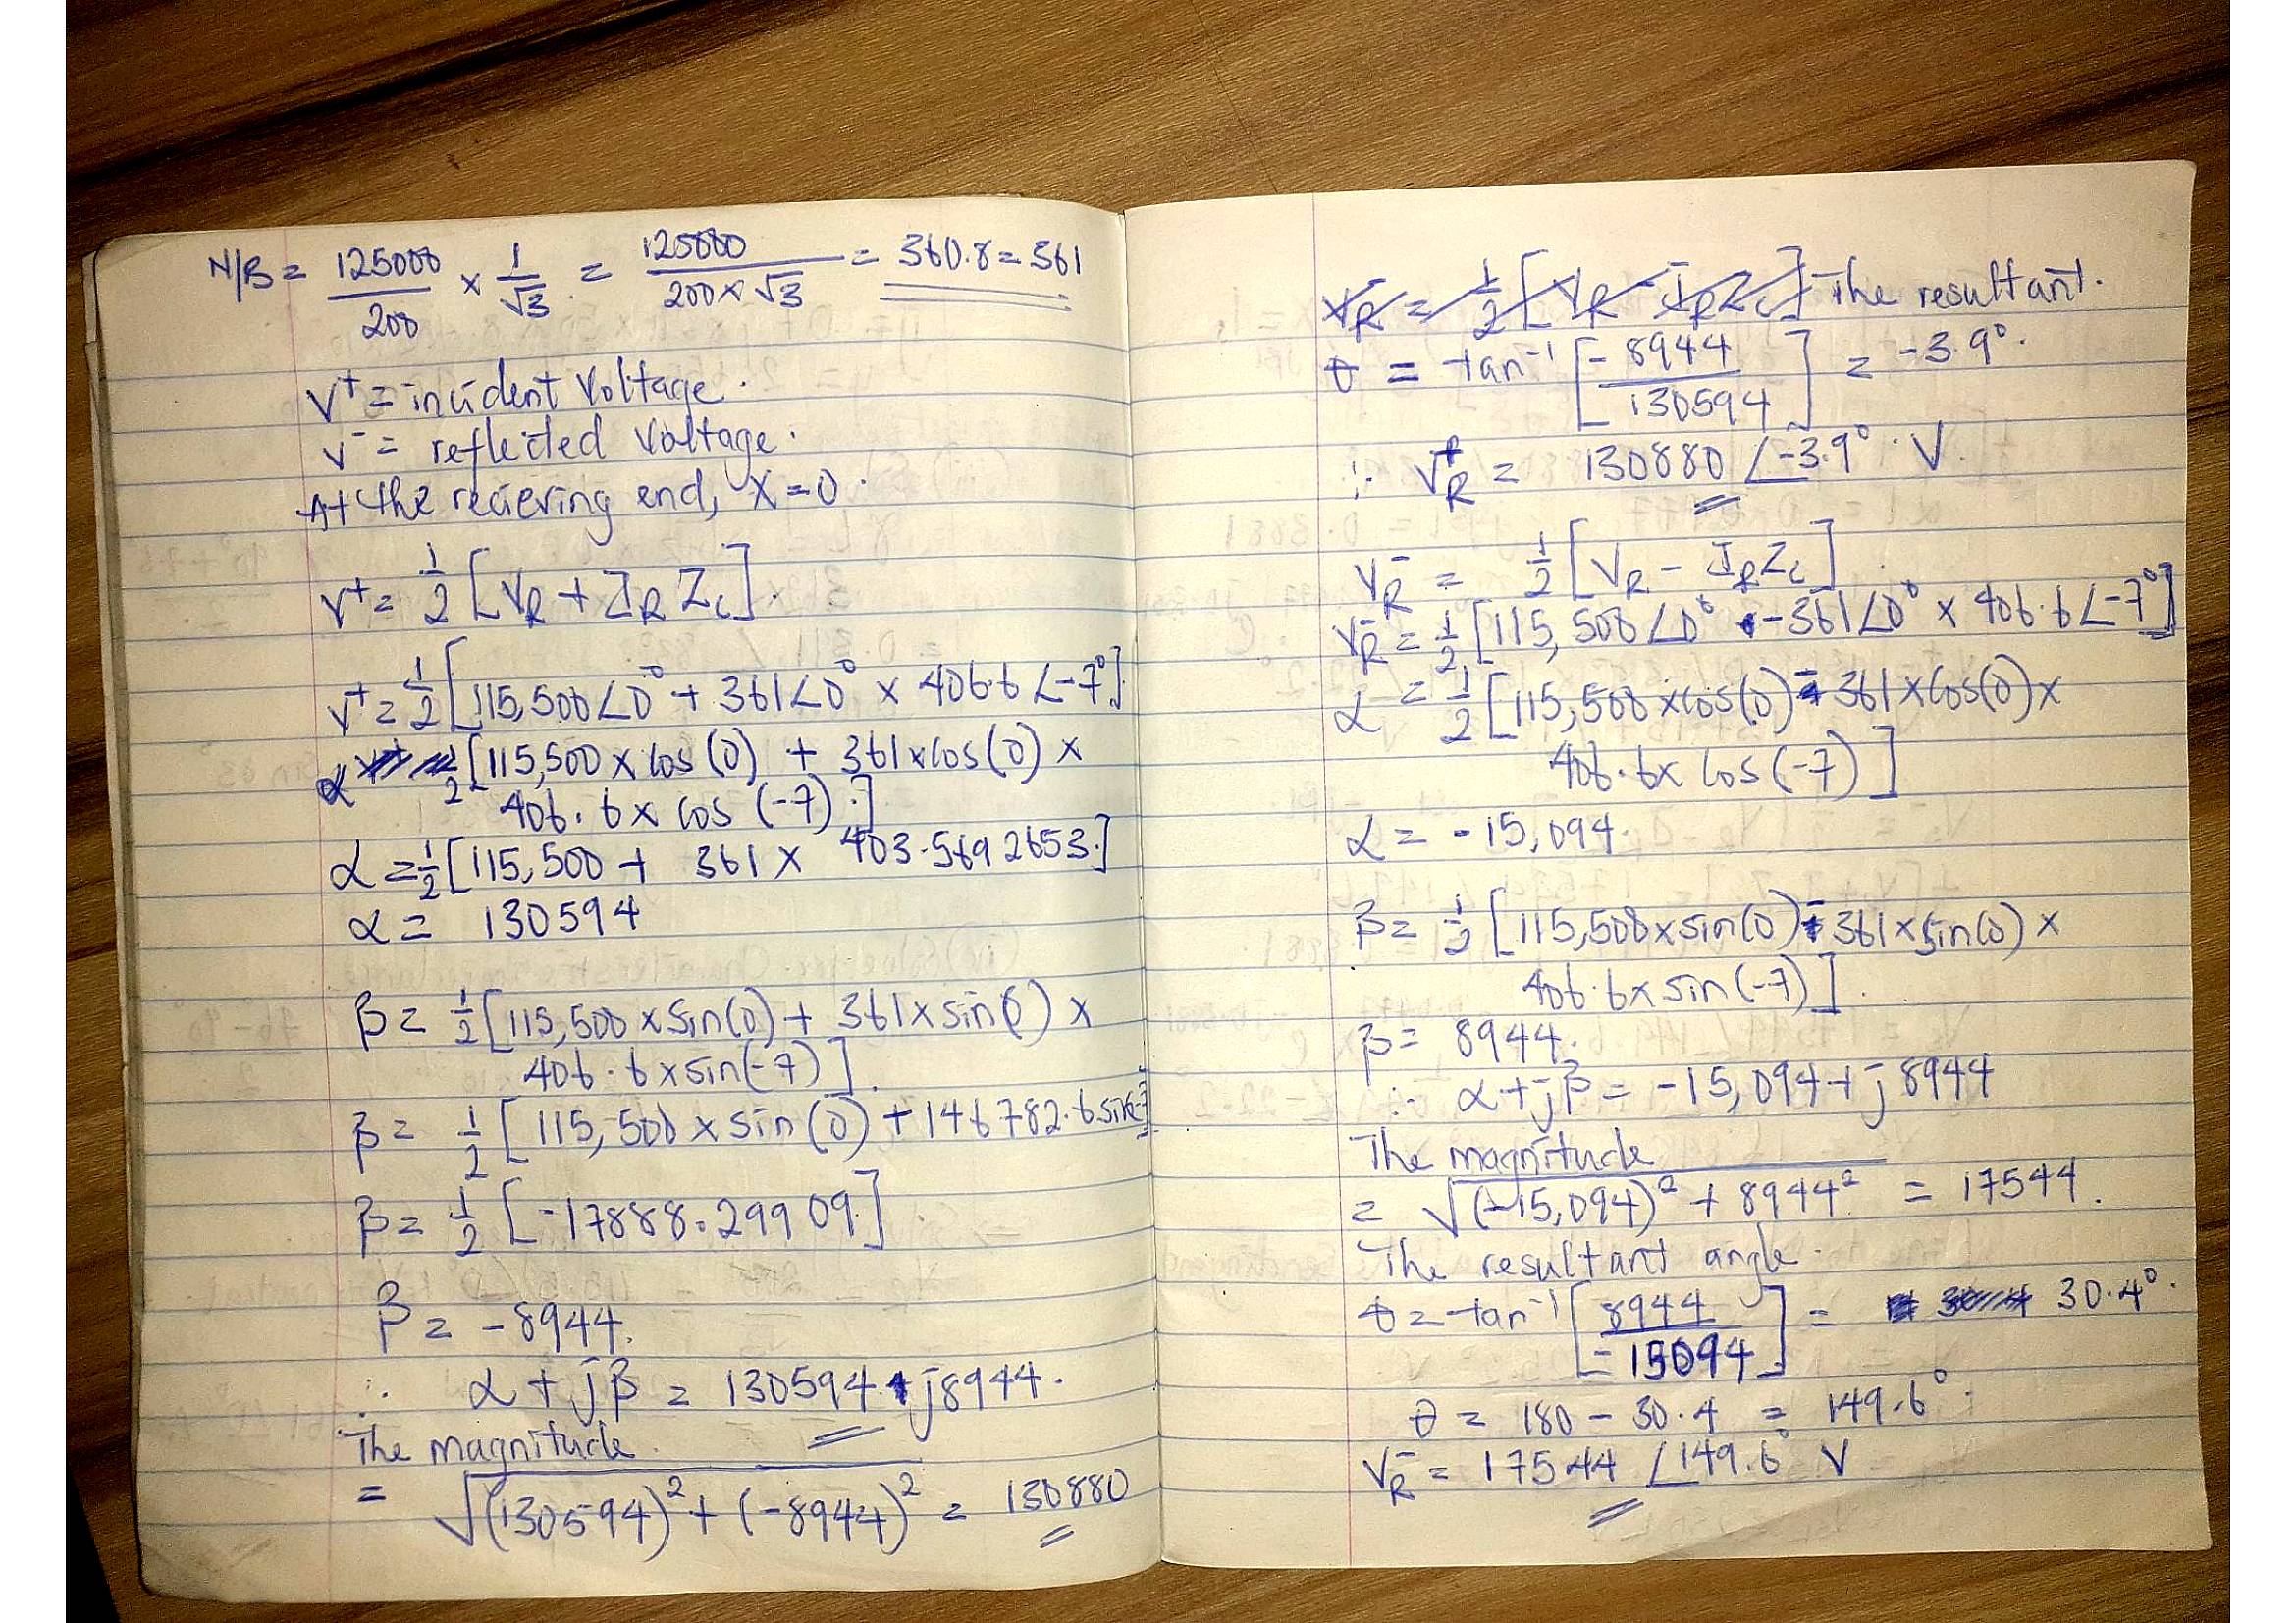 N/B = 125000/200 × 1/√3 = 125000/200×√3 = 360.8 = 361
V⁺ = incident Voltage.
V⁻ = reflected Voltage.
At the recieving end, x = 0.
V⁺ = 1/2 [V_R + I_R Z_c].
V⁺ = 1/2 [115,500∠0° + 361∠0° × 406.6∠-7°]
α 1/2 [115,500 × cos(0) + 361 × cos(0) ×
406.6 × cos(-7).]
α = 1/2 [115,500 + 361 × 403.5692653.]
α = 130594
β = 1/2 [115,500 × sin(0) + 361 × sin(0) ×
406.6 × sin(-7)].
β = 1/2 [115,500 × sin(0) + 146782.6 sin(-7)]
β = 1/2 [-17888.29909]
β = -8944.
∴ α + jβ = 130594 - j8944.
The magnitude.
= √(130594)² + (-8944)² = 130880
V_R⁻ = 1/2 [V_R - I_R Z_c] The resultant.
θ = tan⁻¹ [-8944/130594] = -3.9°.
∴ V_R⁺ = 130880 ∠-3.9° V.
V_R⁻ = 1/2 [V_R - I_R Z_c].
V_R⁻ = 1/2 [115,500∠0° - 361∠0° × 406.6∠-7°]
α = 1/2 [115,500 × cos(0) - 361 × cos(0) ×
406.6 × cos(-7)]
α = -15,094.
β = 1/2 [115,500 × sin(0) - 361 × sin(0) ×
406.6 × sin(-7)].
β = 8944.
∴ α + jβ = -15,094 + j8944
The magnitude
= √(-15,094)² + 8944² = 17544.
The resultant angle.
θ = tan⁻¹ [8944/-15094] = 30.4°.
θ = 180 - 30.4 = 149.6°.
V_R⁻ = 17544 ∠149.6° V